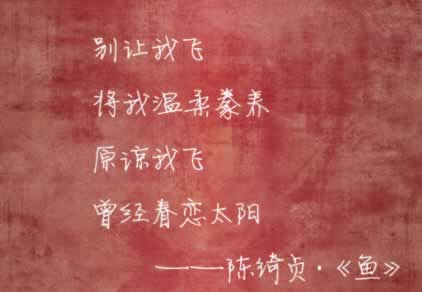 别让我飞
将我温柔豢养
原谅我飞
曾经眷恋太阳
——陈绮贞·《鱼》